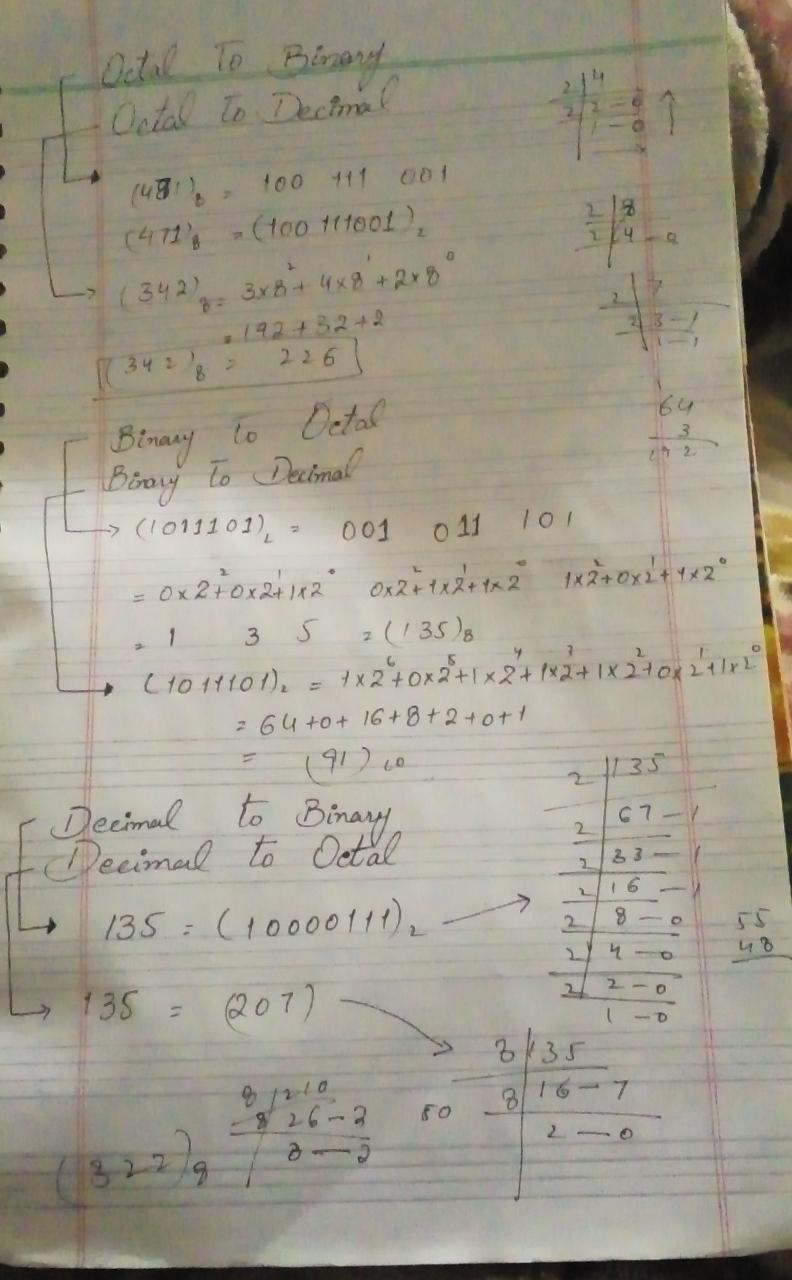 Octal To Binary
Octal To Decimal
2 | 4
2 | 2 - 0
1 - 0
(471)₈ = 100 111 001
(471)₈ = (100 111001)₂
2 | 8
2 | 4 - 0
(342)₈ = 3x8² + 4x8¹ + 2x8⁰
= 192 + 32 + 2
(342)₈ = 226
2 | 7
2 | 3 - 1
1 - 1
64
3
192
Binary to Octal
Binary To Decimal
(1011101)₂ = 001 011 101
= 0x2²+0x2¹+1x2⁰ 0x2²+1x2¹+1x2⁰ 1x2²+0x2¹+1x2⁰
= 1 3 5 = (135)₈
(1011101)₂ = 1x2⁶+0x2⁵+1x2⁴+1x2³+1x2²+0x2¹+1x2⁰
= 64+0+16+8+2+0+1
= (91)₁₀
Decimal to Binary
Decimal to Octal
135 = (10000111)₂
2 | 135
2 | 67 - 1
2 | 33 - 1
2 | 16 - 1
2 | 8 - 0
2 | 4 - 0
2 | 2 - 0
1 - 0
55
48
135 = (207)
8 | 135
8 | 16 - 7
2 - 0
8 | 210
8 | 26 - 2
3 - 2
80
(322)₈